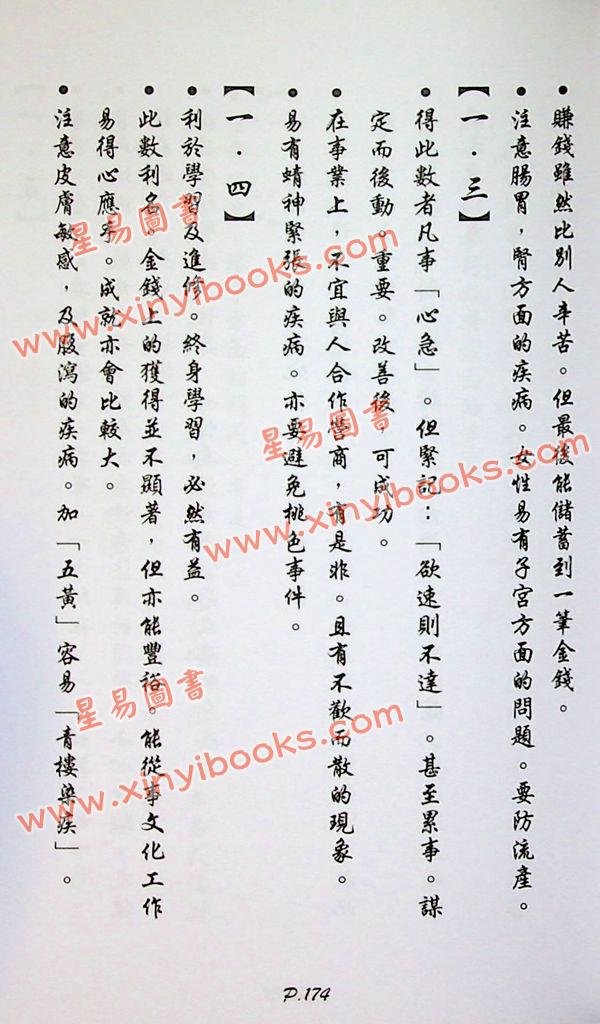 •賺錢雖然比別人辛苦。但最後能儲蓄到一筆金錢。
•注意腸胃，腎方面的疾病。女性易有子宮方面的問題。要防流產。
【一．三】
•得此數者凡事「心急」。但緊記：「欲速則不達」。甚至累事。謀
定而後動。重要。改善後，可成功。
•在事業上，不宜與人合作營商，有是非。且有不歡而散的現象。
•易有精神緊張的疾病。亦要避免桃色事件。
【一．四】
•利於學習及進修。終身學習，必然有益。
•此數利名。金錢上的獲得並不顯著，但亦能豐裕。能從事文化工作
易得心應手。成就亦會比較大。
•注意皮膚敏感，及腹瀉的疾病。加「五黃」容易「青樓染疾」。
P.174
星易圖書
www.xinyibooks.com
星易圖書
www.xinyibooks.com
星易圖書
www.xinyibooks.com